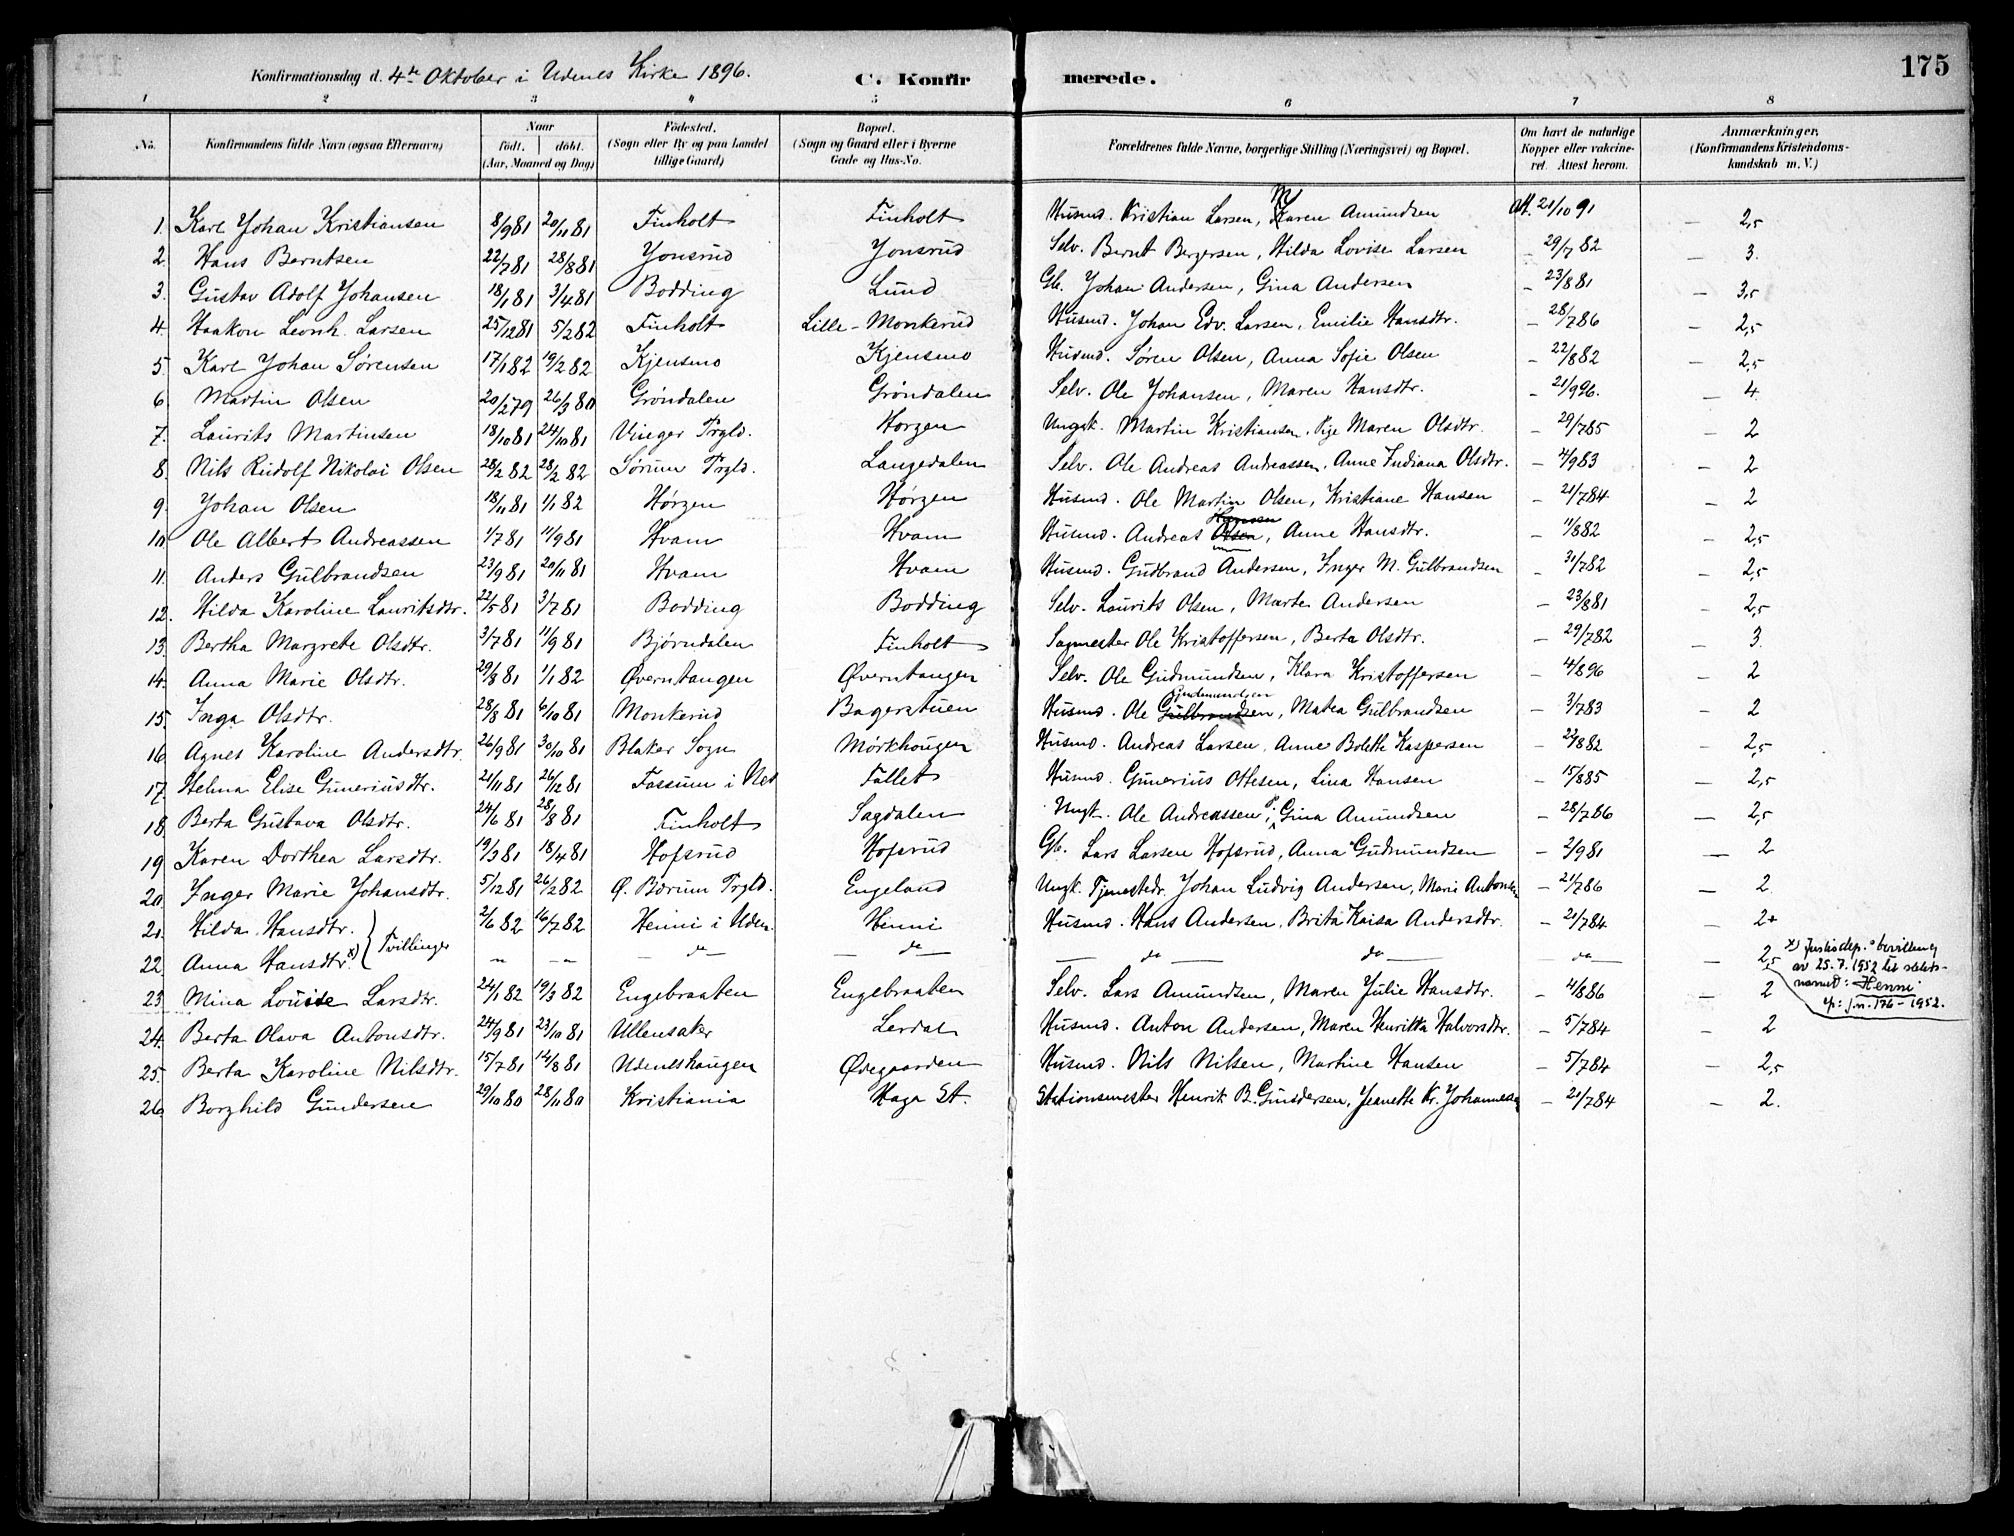 175
Konfirmationsdag d. 4de Oktober i Udenes Kirke 1896. C. Konfirmerede.
1 2 3 4 5 6 7 8
No. Konfirmandens fulde Navn (ogsaa Efternavn) Naar födt. döbt. (Aar, Maaned og Dag) Födested. (Sogn eller By og paa Landet tillige Gaard) Bopæl. (Sogn og Gaard eller i Byerne Gade og Hus-No. Forældrenes fulde Navne, borgerlige Stilling (Næringsvei) og Bopæl. Om havt de naturlige Kopper eller vakcineret. Attest herom. Anmærkninger. (Konfirmandens Kristendomskundskab m. V.)
1. Karl Johan Kristiansen 8/9 81 20/11 81 Finholt Finholt Husmd. Kristian Larsen, Maren Amundsen Att. 21/10 91 – 2,5
2. Hans Berntsen 22/7 81 28/8 81 Jonsrud Jonsrud Selv. Bernt Bergersen, Hilda Lovise Larsen – 29/7 82 – 3.
3. Gustav Adolf Johansen 18/1 81 3/4 81 Bodding Lund Gb. Johan Andersen, Gina Andersen – 23/8 81 – 3,5
4. Haakon Leonh. Larsen 25/12 81 5/2 82 Finholt Lille-Monkerud Husmd. Johan Edv. Larsen, Emilie Hansdtr. – 28/7 86 – 2,5
5. Karl Johan Sørensen 17/1 82 19/2 82 Kjensmo Kjensmo Husmd. Søren Olsen, Anna Sofie Olsen – 22/8 82 – 2,5
6. Martin Olsen 20/2 79 26/3 80 Grøndalen Grøndalen Selv. Ole Johansen, Maren Hansdtr. – 21/9 96. – 4.
7. Laurits Martinsen 18/10 81 24/10 81 Vinger Prgld. Horgen Ungk. Martin Kristiansen, Pige Maren Olsdtr. – 29/7 85 – 2
8. Nils Rudolf Nikolai Olsen 28/2 82 28/2 82 Sørum Prgld. Langedalen Selv. Ole Andreas Andreassen, Anne Indiana Olsdtr. – 4/9 83 – 2
9. Johan Olsen 18/11 81 1/1 82 Hørgen Hørgen Husmd. Ole Martin Olsen, Kristiane Hansen – 21/7 84 – 2
10 Ole Albert Andreassen 1/7 81 11/9 81 Hvam Hvam Husmd. Andreas Olsen, Anne Hansdtr. – 1/8 82 – 2,5
11. Anders Gulbrandsen 23/9 81 20/11 81 Hvam Hvam Husmd. Gudbrand Andersen, Inger M. Gulbrandsen – 31/7 82 – 2,5
12. Hilda Karoline Lauritsdtr. 22/5 81 3/7 81 Bodding Bodding Selv. Laurits Olsen, Marte Andersen – 23/8 81 – 2,5
13. Bertha Margrete Olsdtr. 3/7 81 11/9 81 Bjørndalen Finholt Sagmester Ole Kristoffersen, Berta Olsdtr. – 29/7 82 – 3.
14. Anna Marie Olsdtr. 29/8 81 1/1 82 Øverntangen Øverntangen Selv. Ole Gudmundsen, Klara Kristoffersen – 4/8 96 – 2
15. Inga Olsdtr. 28/8 81 6/10 81 Monkerud Bagerstuen Husmd. Ole Gulbrandsen Gudmundsen, Matea Gulbrandsen – 3/7 83 – 2
16. Agnes Karoline Andersdtr. 26/9 81 30/10 81 Blaker Sogn Mørkhougen Husmd. Andreas Larsen, Anne Bolette Kaspersen – 22/8 82 – 2,5
17. Helma Elise Gunerius dtr. 21/11 81 26/12 81 Fossum i Nes Fallet Husmd. Gunerius Ottesen, Lina Hansen – 15/8 85 – 2,5
18. Berta Gustava Olsdtr. 24/6 81 28/8 81 Finholt Sagdalen Ungk. Ole Andreassen, P. Gina Amundsen – 28/7 86 – 2,5
19 Karen Dorthea Larsdtr. 19/3 81 18/4 81 Hofsrud Hofsrud Gb. Lars Larsen Hofsrud, Anna Gudmundsen – 2/9 81 – 2
20 Inger Marie Johansdtr. 5/12 81 26/2 82 Ø. Bærum Prgld. Engeland Ungk. Tjenestedr. Johan Ludvig Andersen, Marie Antonsen – 21/7 86 – 2.
21. Hilda Hansdtr. } Tvillinger 2/6 82 16/7 82 Henni i Uden. Henni Husmd. Hans Andersen, Brita Kaisa Andersdtr. – 21/7 84 – 2+
22. Anna Hansdtr. x) – – – do – – do – – do do – – do – – 2,5 x) Justisdep.s bevilling av 25.7.1952 til slektsnavnet: Henni cfr: j.nr. 176-1952.
23. Mina Louise Larsdtr. 24/1 82 19/3 82 Engebraaten Engebraaten Selv. Lars Amundsen, Maren Julie Hansdtr. – 4/8 86 – 2
24. Berta Olava Antonsdtr. 24/9 81 23/10 81 Ullensaker Lerdal Husmd. Anton Andersen, Maren Henritta Halvorsdtr. – 5/7 84 – 2
25. Berta Karoline Nilsdtr. 15/7 81 14/8 81 Udeneshaugen Ødegaarden Husmd. Nils Nilsen, Martine Hansen – 5/7 84 – 2,5
26 Borghild Gundersen 29/10 80 28/11 80 Kristiania Haga St. Stationsmester Henrik B. Gundersen, Jeanette Kr. Johannesen – 21/7 84 – 2.